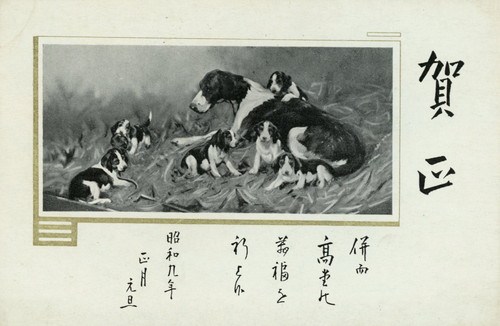 賀正
併而
高堂の
萬福を
祈上候
昭和九年
正月
元旦